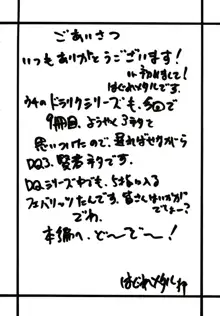 ごあいさつ
いつもありがとうございます!
初めまして!
はぐれメタルです。
ウチのドラクエシリーズも、今回で
9冊目、ようやくネタを
思いつけたので、遅ればせながら
DQ3、賢者ネタです。
DQシリーズ中でも、5指に入る
フェバリットたんです。皆さんはいかがでしょー?
でわ、
本編へ、ど〜で〜!
はぐれメタル